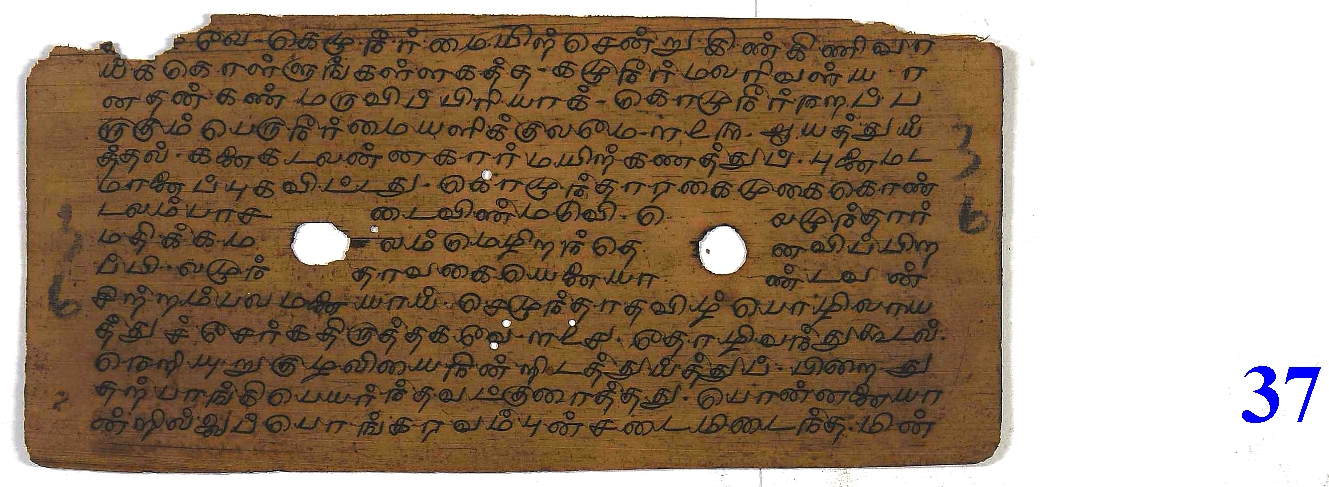 வே - கெழுநீர் மையிற் சென்று கிண்கிணி வாா
ய்க்கொள்ளுங்கள்ளகத்த - கழுநீர்மலரிவள்யா
னதன்கண் மருவிப்பிரியாக் - கொழுநீர்நறப்ப
ருகும் பெருநீர்மையளிக்குலமெ - ௱௨௩. ஆயத்துய்
த்தல் - கனைகடலண்ணகார்மயிற்கணத்துப் - புனைமட
மானைப்புகவிட்டது - கொழுந்தாரகைமுகைகொண்
டலம்பாச டைவிண்மடுவி - லெழுந்தார்
மதிக்கம லம்மெழிறந்தெ னவிப்பிற
ப்பி - லழுந் தாவகையெனையா ண்டவ ன்
சிற்றம்பலமனையாய் - செழுந்தாதவிழ் பொழிலாய
த்துச் சேர்கதிருத்தகவே - ௱௨௪ - தோழிவந்துகூடல் -
நெறியுறுகுழலியைநின்றிடத்துய்த்துப் - பிறைநு
தற்பாங்கிபெயர்ந்தவட்குரைத்தது - பொன்னனையா
ன்றில்லைப்பொங்கரவம்புன்சடைமிடைந்த - மின்